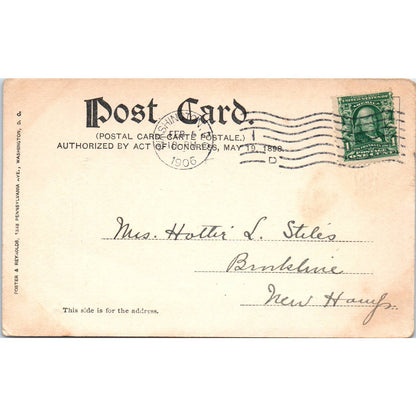 Post Card.
(POSTAL CARD. CARTE POSTALE.)
AUTHORIZED BY ACT OF CONGRESS, MAY 19, 1898.
WASHINGTON, D.
FEB
1906
D
1
FOSTER & REYNOLDS, PENNSYLVANIA AVE., WASHINGTON, D. C.
Mrs. Hattie L. Stiles
Brookline
New Hamp.
This side is for the address.